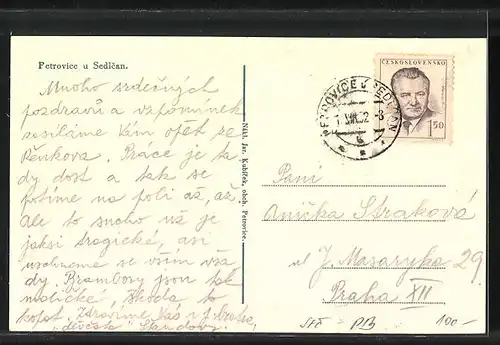 Petrovice u Sedlčan.
Mnoho srdečných
pozdravů a vzpomínek
posíláme Vám opět ze
Práce je ta-
dy dost a tak se
potíme na poli až, až,
ale to sucho už je
jaksi tragické, asi
uschneme se vším vša-
dy. Brambory jsou tak
maličké, škoda to
kopat. Zdravíme Vás
Nákl. Jar. Kubíček, obch. Petrovice.
ČESKOSLOVENSKO
1.50
PETROVICE U SEDLČAN
Paní
Anička Straková
ul J. Masaryka 29
Praha XII
100-